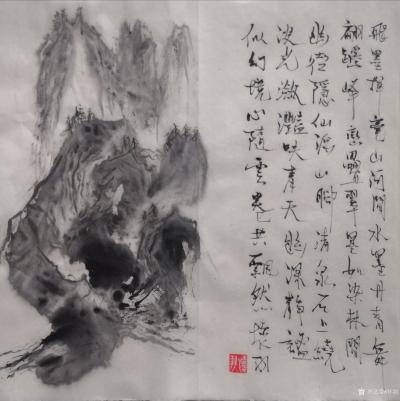 飛墨揮毫山河間水墨丹青氣
翩躚峰巒疊翠墨如染林間
幽徑隱仙瑤山脚清泉石上繞
波光瀲灩映青天幽深靜謐
似幻境心隨雲卷共飄然